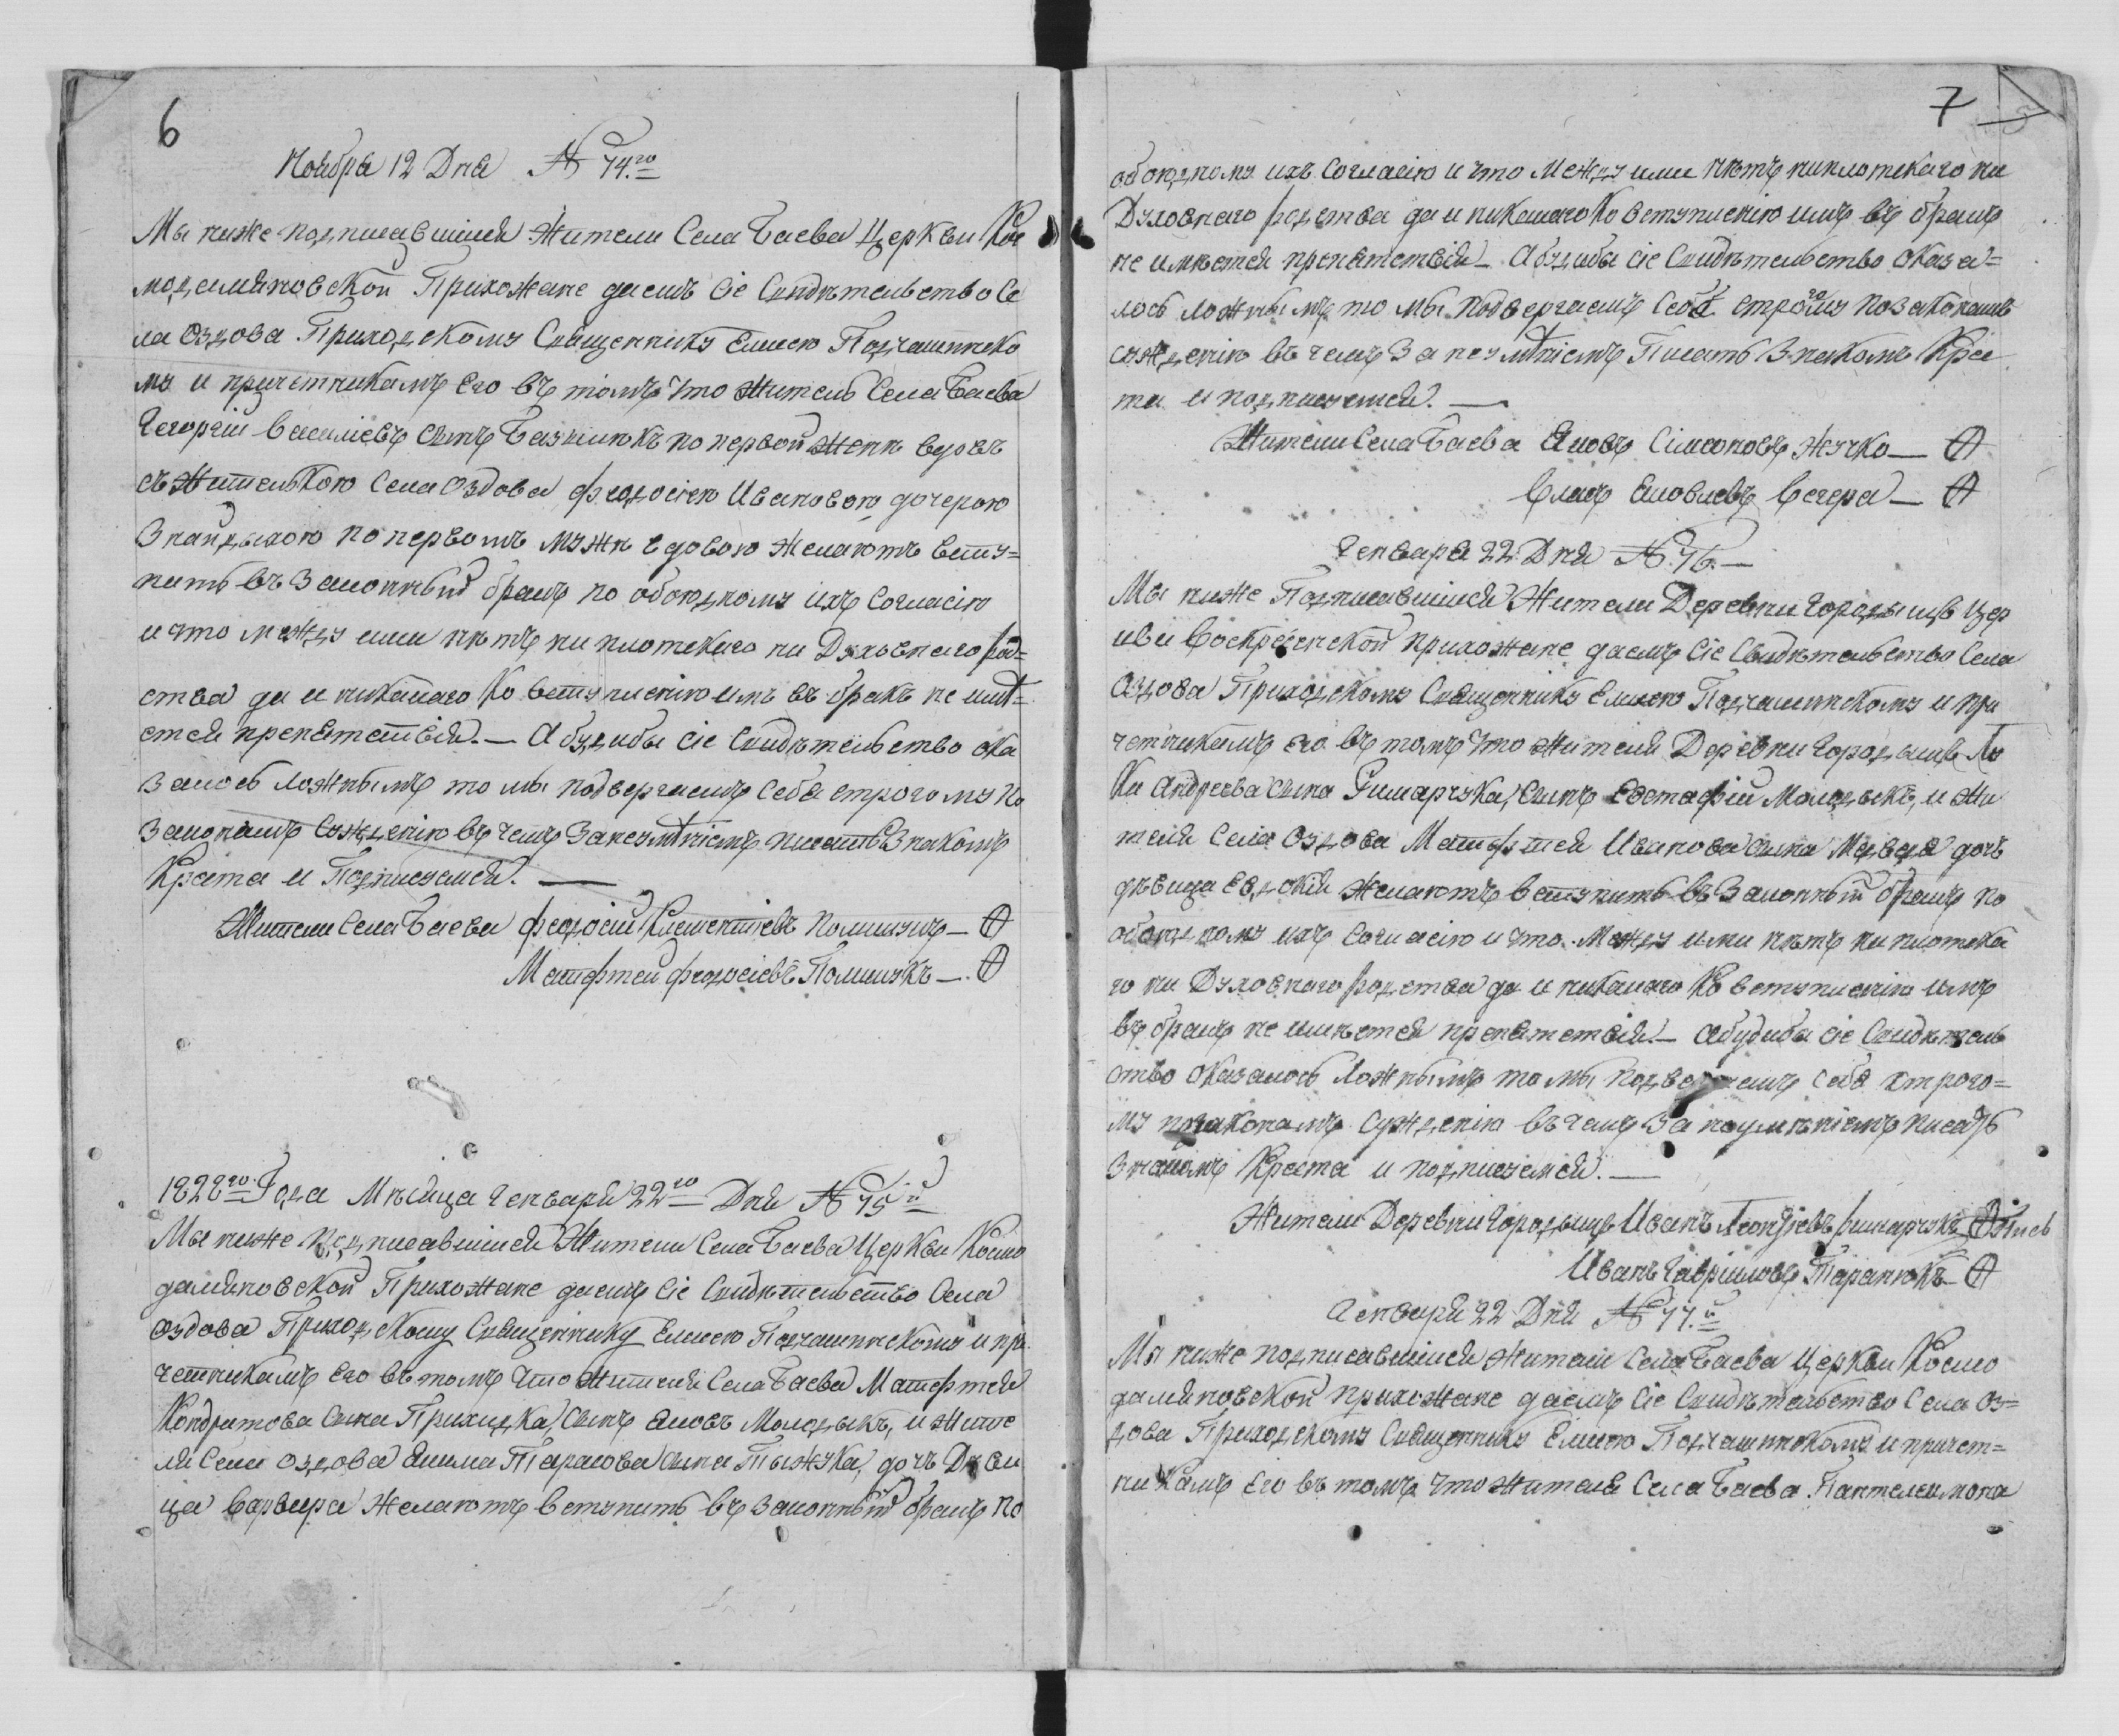 6
Ноября 12 Дня № 74.го
Мы ниже подписавшіися Жители Села Баева Церкви Кос
модемяновской Прихожане даемъ сіе Свидѣтельство Се
ла Оздова Приходскому Священнику Елисею Подчашинско
му и причетникамъ Его въ томъ что Житель Села Баева
Георгій Василіевъ сынъ по первой Женѣ вдовъ
съ Жителькою Села Оздова Феодосіею Ивановою дочерою
по первомъ мужѣ вдовою желаютъ всту=
пить въ Законный бракъ по обоюдному ихъ Согласію
и что между ими нѣтъ ни плотскаго ни Духовнаго род=
ства да и никакаго Ко вступленію имъ въ бракъ не имѣ=
ется препятствія. — А будибы сіе Свидѣтельство ока
залось Ложнымъ то мы подвергаемъ Себя строгому по
Законамъ Сужденію въ чемъ Занеумѣніемъ писать Знакомъ
Креста и Подписуемся. —
Жители Села Баева Феодосій Климентіевъ Полищукъ —
Матфтей Феодосіевъ Полищукъ —
1828го Года Мѣсяца Генваря 22го Дня № 75й
Мы ниже Подписавшіися Жители Села Баева Церкви Космо
дамяновской Прихожане даемъ сіе Свидѣтельство Села
Оздова Приходскому Священнику Елисею Подчашинскому и при
четникамъ Его въ томъ что Жителя Села Баева Матфтея
Кондратова Сына Приходка, Сынъ Яковъ Молодыкъ, и Жите
ля Села Оздова Якима Тарасова сына Тыжука, дочь Дѣви
ца Варвара Желаютъ вступить въ Законный бракъ по
7
обоюдному ихъ Согласію и что Между ими нѣтъ ниплотскаго ни
Духовнаго родства да и никакаго Ко вступленію имъ въ бракъ
не имѣется препятствія — А будибы сіе Свидѣтельство оказа=
лось Ложнымъ то мы Подвергаемъ Себя строгому позаконамъ
сужденію въ чемъ Занеумѣніемъ Писать Знакомъ Крес
та и подписуемся. —
Жители Села Баева Яковъ Сімеоновъ Жучко —
Яковлевъ —
Генваря 22 Дня № 76. —
Мы ниже Подписавшіися Жители Деревни Городыщъ Цер
кви Воскресенской прихожане даемъ Сіе Свидѣтельство Села
Оздова Приходскому Священнику Елисею Подчашинскому и при
четникамъ его въ томъ что жителя Деревни Городыщъ Лу
Ки Андреева Сына Римарчука, Сынъ Евстафій Молодыкъ, и Жи
теля Села Оздова Матфтея Иванова сына Медведя дочь
дѣвица Евдокія Желаютъ вступить въ Законный бракъ по
обоюдному ихъ Согласію и что Между ими нѣтъ ни плотска
го ни Духовнаго родства да и никакаго Ко вступленію имъ
въ бракъ не имѣется препятствія. — Абудибы сіе Свидѣтель
ство оказалось Ложнымъ то мы Подвергаемъ себя строго=
му позаконамъ сужденію въ чемъ За неумѣніемъ писать
знакомъ Креста и подписуемся. —
Жители Деревни Городыщъ Иванъ Римарчукъ
Иванъ Гавріиловъ Таранюкъ —
Генваря 22 Дня № 77.й
Мы ниже подписавшіися Жители Села Баева Церкви Космо
дамяновской прихожане даемъ Сіе Свидѣтельство Села Оз=
дова Приходскому Священнику Елисею Подчашинскому и причет=
никамъ Его въ томъ что жителя Села Баева Пантелеимона